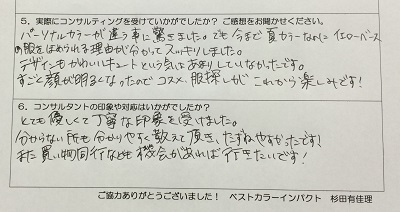 5．実際にコンサルティングを受けていかがでしたか？ ご感想をお聞かせください。
パーソナルカラーが違う事に驚きました。でも今まで夏カラーなのにイエローベース
の服をほめられる理由が分かってスッキリしました。
デザインもかわいいキュートという気はあまりしていなかったです。
すごく顔が明るくなったのでコスメ、服探しがこれから楽しみです！
6．コンサルタントの印象や対応はいかがでしたか？
とても優しくて丁寧な印象を受けました。
分からない所も分かりやすく教えて頂き、たずねやすかったです！
また買い物同行なども機会があれば行きたいです！
ご協力ありがとうございました！ ベストカラーインパクト 杉田有佳理